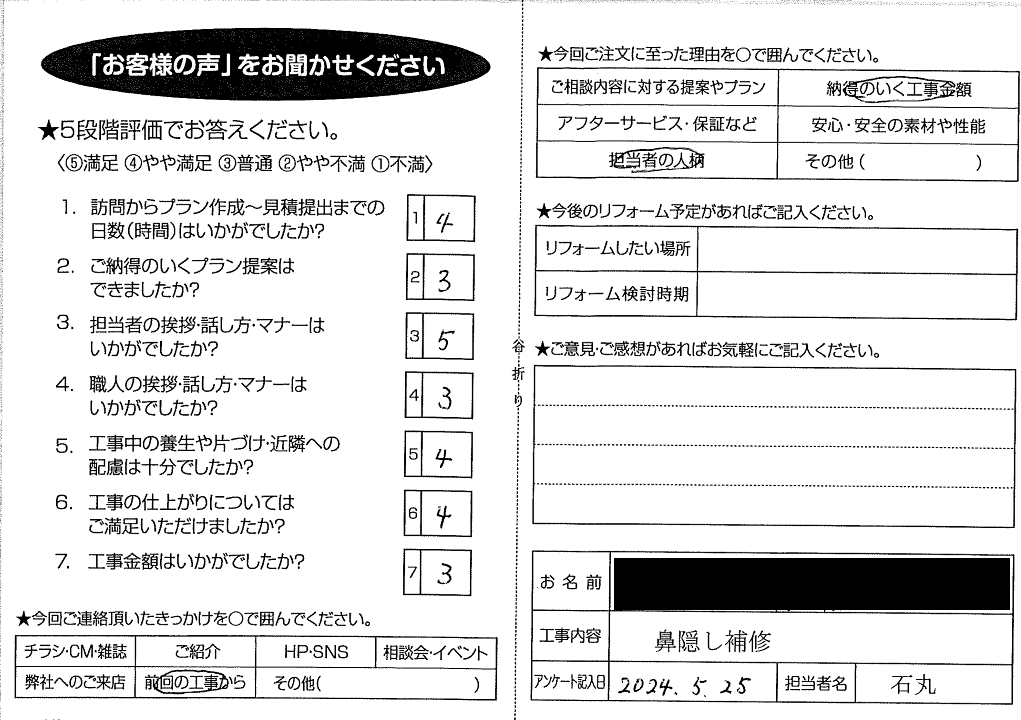 「お客様の声」をお聞かせください
★5段階評価でお答えください。
〈⑤満足 ④やや満足 ③普通 ②やや不満 ①不満〉
1. 訪問からプラン作成～見積提出までの
日数(時間)はいかがでしたか?
1 4
2. ご納得のいくプラン提案は
できましたか?
2 3
3. 担当者の挨拶・話し方・マナーは
いかがでしたか?
3 5
4. 職人の挨拶・話し方・マナーは
いかがでしたか?
4 3
5. 工事中の養生や片づけ・近隣への
配慮は十分でしたか?
5 4
6. 工事の仕上がりについては
ご満足いただけましたか?
6 4
7. 工事金額はいかがでしたか?
7 3
★今回ご連絡頂いたきっかけを○で囲んでください。
チラシ・CM・雑誌 ご紹介 HP・SNS 相談会・イベント
弊社へのご来店 前回の工事から その他( )
谷折り
★今回ご注文に至った理由を○で囲んでください。
ご相談内容に対する提案やプラン 納得のいく工事金額
アフターサービス・保証など 安心・安全の素材や性能
担当者の人柄 その他( )
★今後のリフォーム予定があればご記入ください。
リフォームしたい場所
リフォーム検討時期
★ご意見・ご感想があればお気軽にご記入ください。
お名前
工事内容 鼻隠し補修
アンケート記入日 2024.5.25 担当者名 石丸